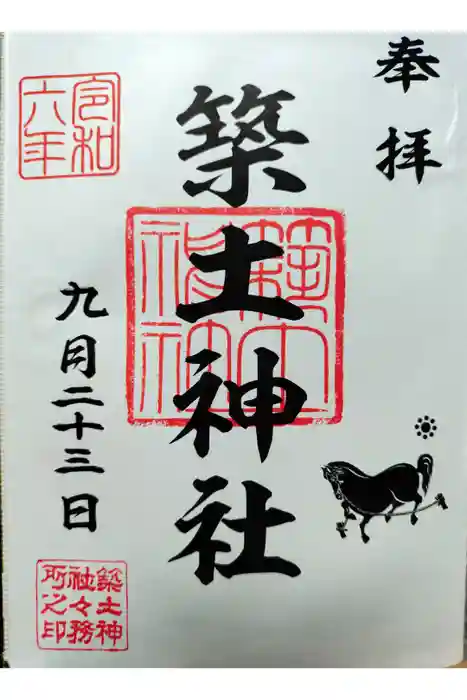 奉拝
築土神社
築土神社
令和
六年
九月二十三日
築土神
社々務
所之印